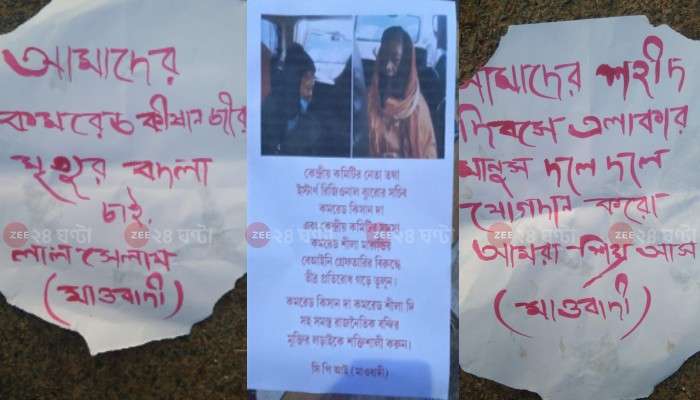 আমাদের
কমরেড কীষান জীর
মৃত্যুর বদলা
চাই.
লাল সেলাম
(মাওবাদী)
কেন্দ্রীয় কমিটির নেতা তথা
ইস্টার্ণ রিজিওনাল ব্যুরোর সচিব
কমরেড কিসান দা
এবং কেন্দ্রীয় কমিটির সদস্যা
কমরেড শীলা মারান্ডির
বেআইনি গ্রেফতারির বিরুদ্ধে
তীব্র প্রতিরোধ গড়ে তুলুন।
কমরেড কিসান দা কমরেড শীলা দি
সহ সমস্ত রাজনৈতিক বন্দির
মুক্তির লড়াইকে শক্তিশালী করুন।
সি পি আই (মাওবাদী)
আমাদের শহীদ
দিবসে এলাকার
মানুষ দলে দলে
যোগদান করো
আমরা
(মাওবাদী)
ZEE ২৪ ঘণ্টা
ZEE ২৪ ঘণ্টা
ZEE ২৪ ঘণ্টা